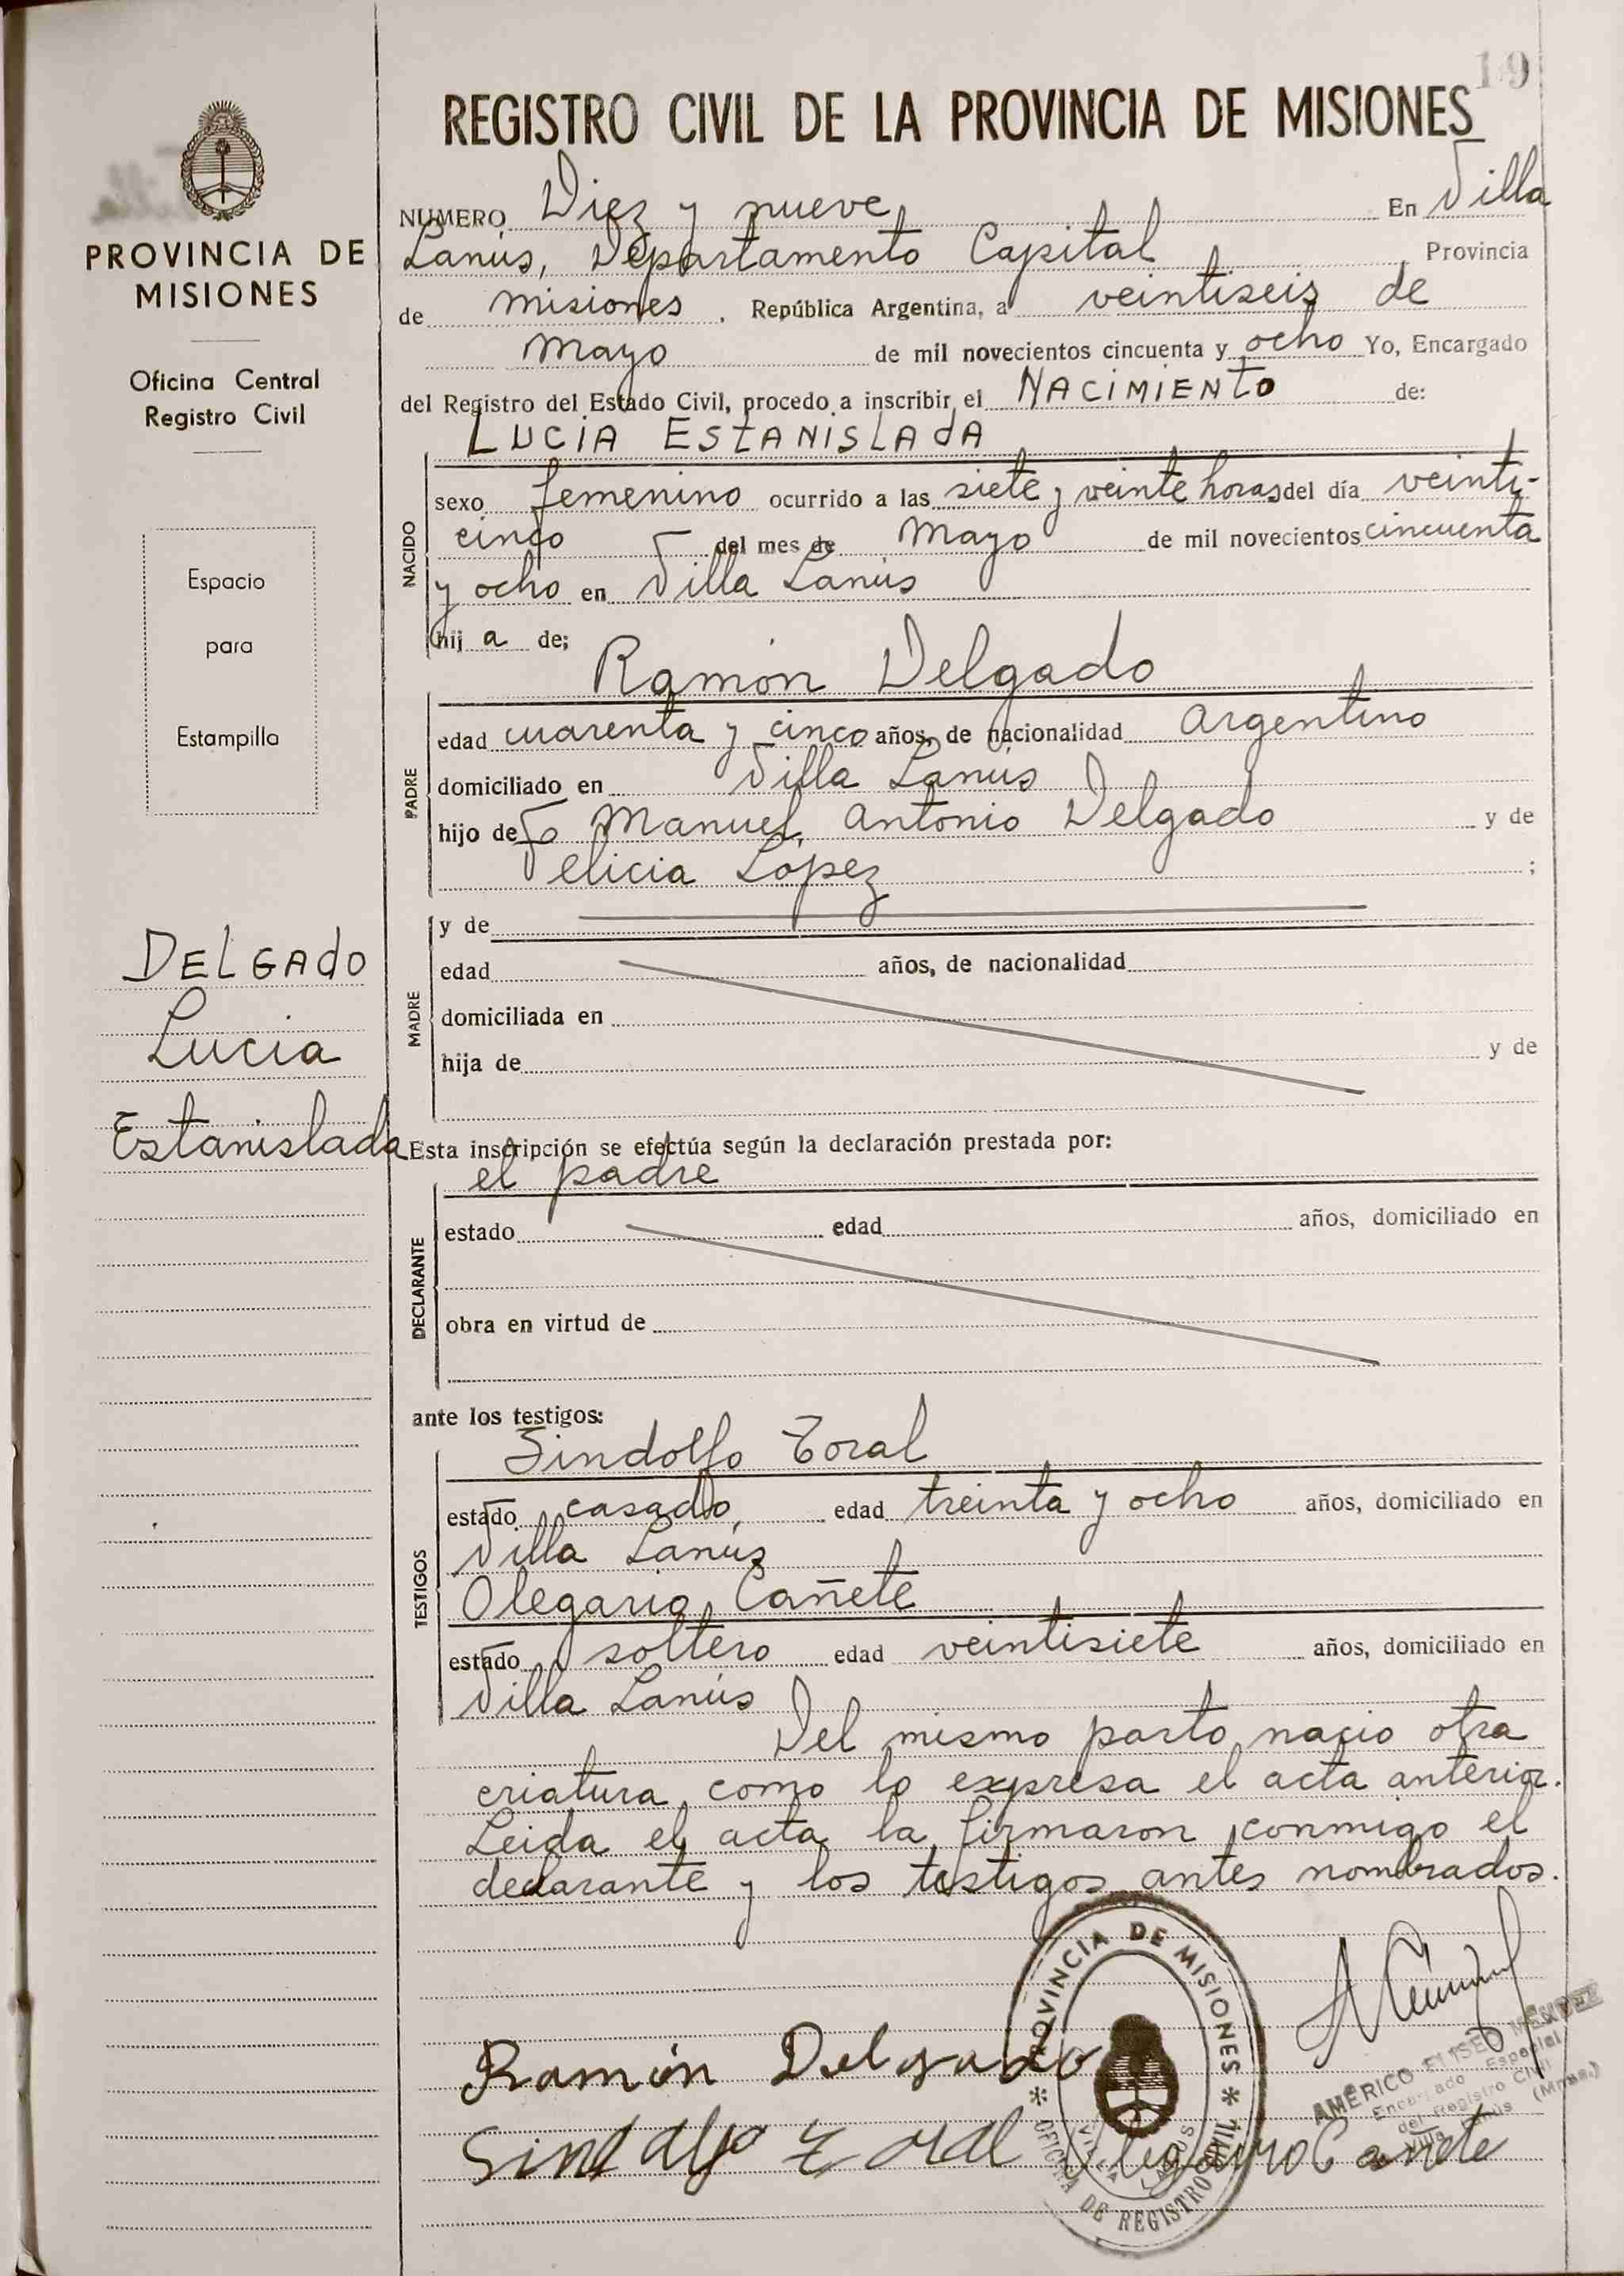 19
REGISTRO CIVIL DE LA PROVINCIA DE MISIONES
PROVINCIA DE
MISIONES
Oficina Central
Registro Civil
Espacio
para
Estampilla
DELGAdO
Lucia
Estanislada
NUMERO Diez y nueve En Villa
Lanús, Departamento Capital Provincia
de Misiones, República Argentina, a veintiseis de
Mayo de mil novecientos cincuenta y ocho Yo, Encargado
del Registro del Estado Civil, procedo a inscribir el NACIMIENTO de:
LUCIA ESTANISLAdA
NACIDO
sexo femenino ocurrido a las siete y veinte horas del día veinti-
cinco del mes de Mayo de mil novecientos cincuenta
y ocho en Villa Lanús
hija de;
Ramón Delgado
PADRE
edad cuarenta y cinco años, de nacionalidad Argentino
domiciliado en Villa Lanús
hijo de Manuel Antonio Delgado y de
Felicia López ;
MADRE
y de
edad años, de nacionalidad
domiciliada en
hija de y de
Esta inscripción se efectúa según la declaración prestada por:
el padre
DECLARANTE
estado edad años, domiciliado en
obra en virtud de
ante los testigos:
Sindolfo Toral
TESTIGOS
estado casado, edad treinta y ocho años, domiciliado en
Villa Lanús
Olegario Cañete
estado soltero edad veintisiete años, domiciliado en
Villa Lanús
Del mismo parto nacio otra
criatura como lo expresa el acta anterior.
Leida el acta la firmaron conmigo el
declarante y los testigos antes nombrados.
PROVINCIA DE MISIONES
OFICINA DE REGISTRO CIVIL
VILLA LANUS
AMÉRICO ELISEO MENDEZ
Encargado Especial
del Registro Civil
Villa Lanús (Mnes.)
Ramón Delgado
Sindolfo Toral Olegario Cañete